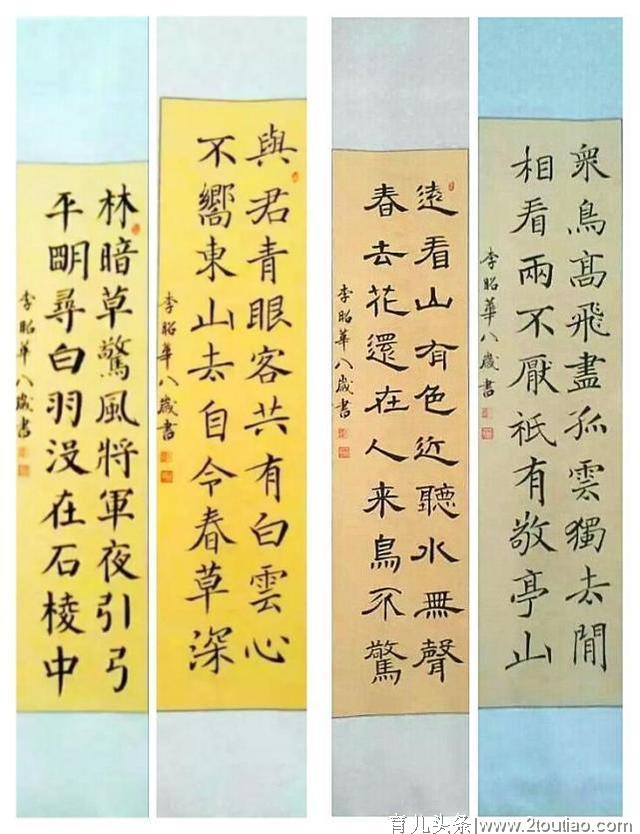 衆鳥髙飛盡孤雲獨去閒
相看兩不厭祇有敬亭山
李昭華八歲書
遠看山有色近聽水無聲
春去花還在人来鳥不驚
李昭華八歲書
與君青眼客共有白雲心
不嚮東山去自令春草深
李昭華八歲書
林暗草驚風將軍夜引弓
平眀尋白羽没在石棱中
李昭華八歲書
育儿头条/www.2toutiao.com